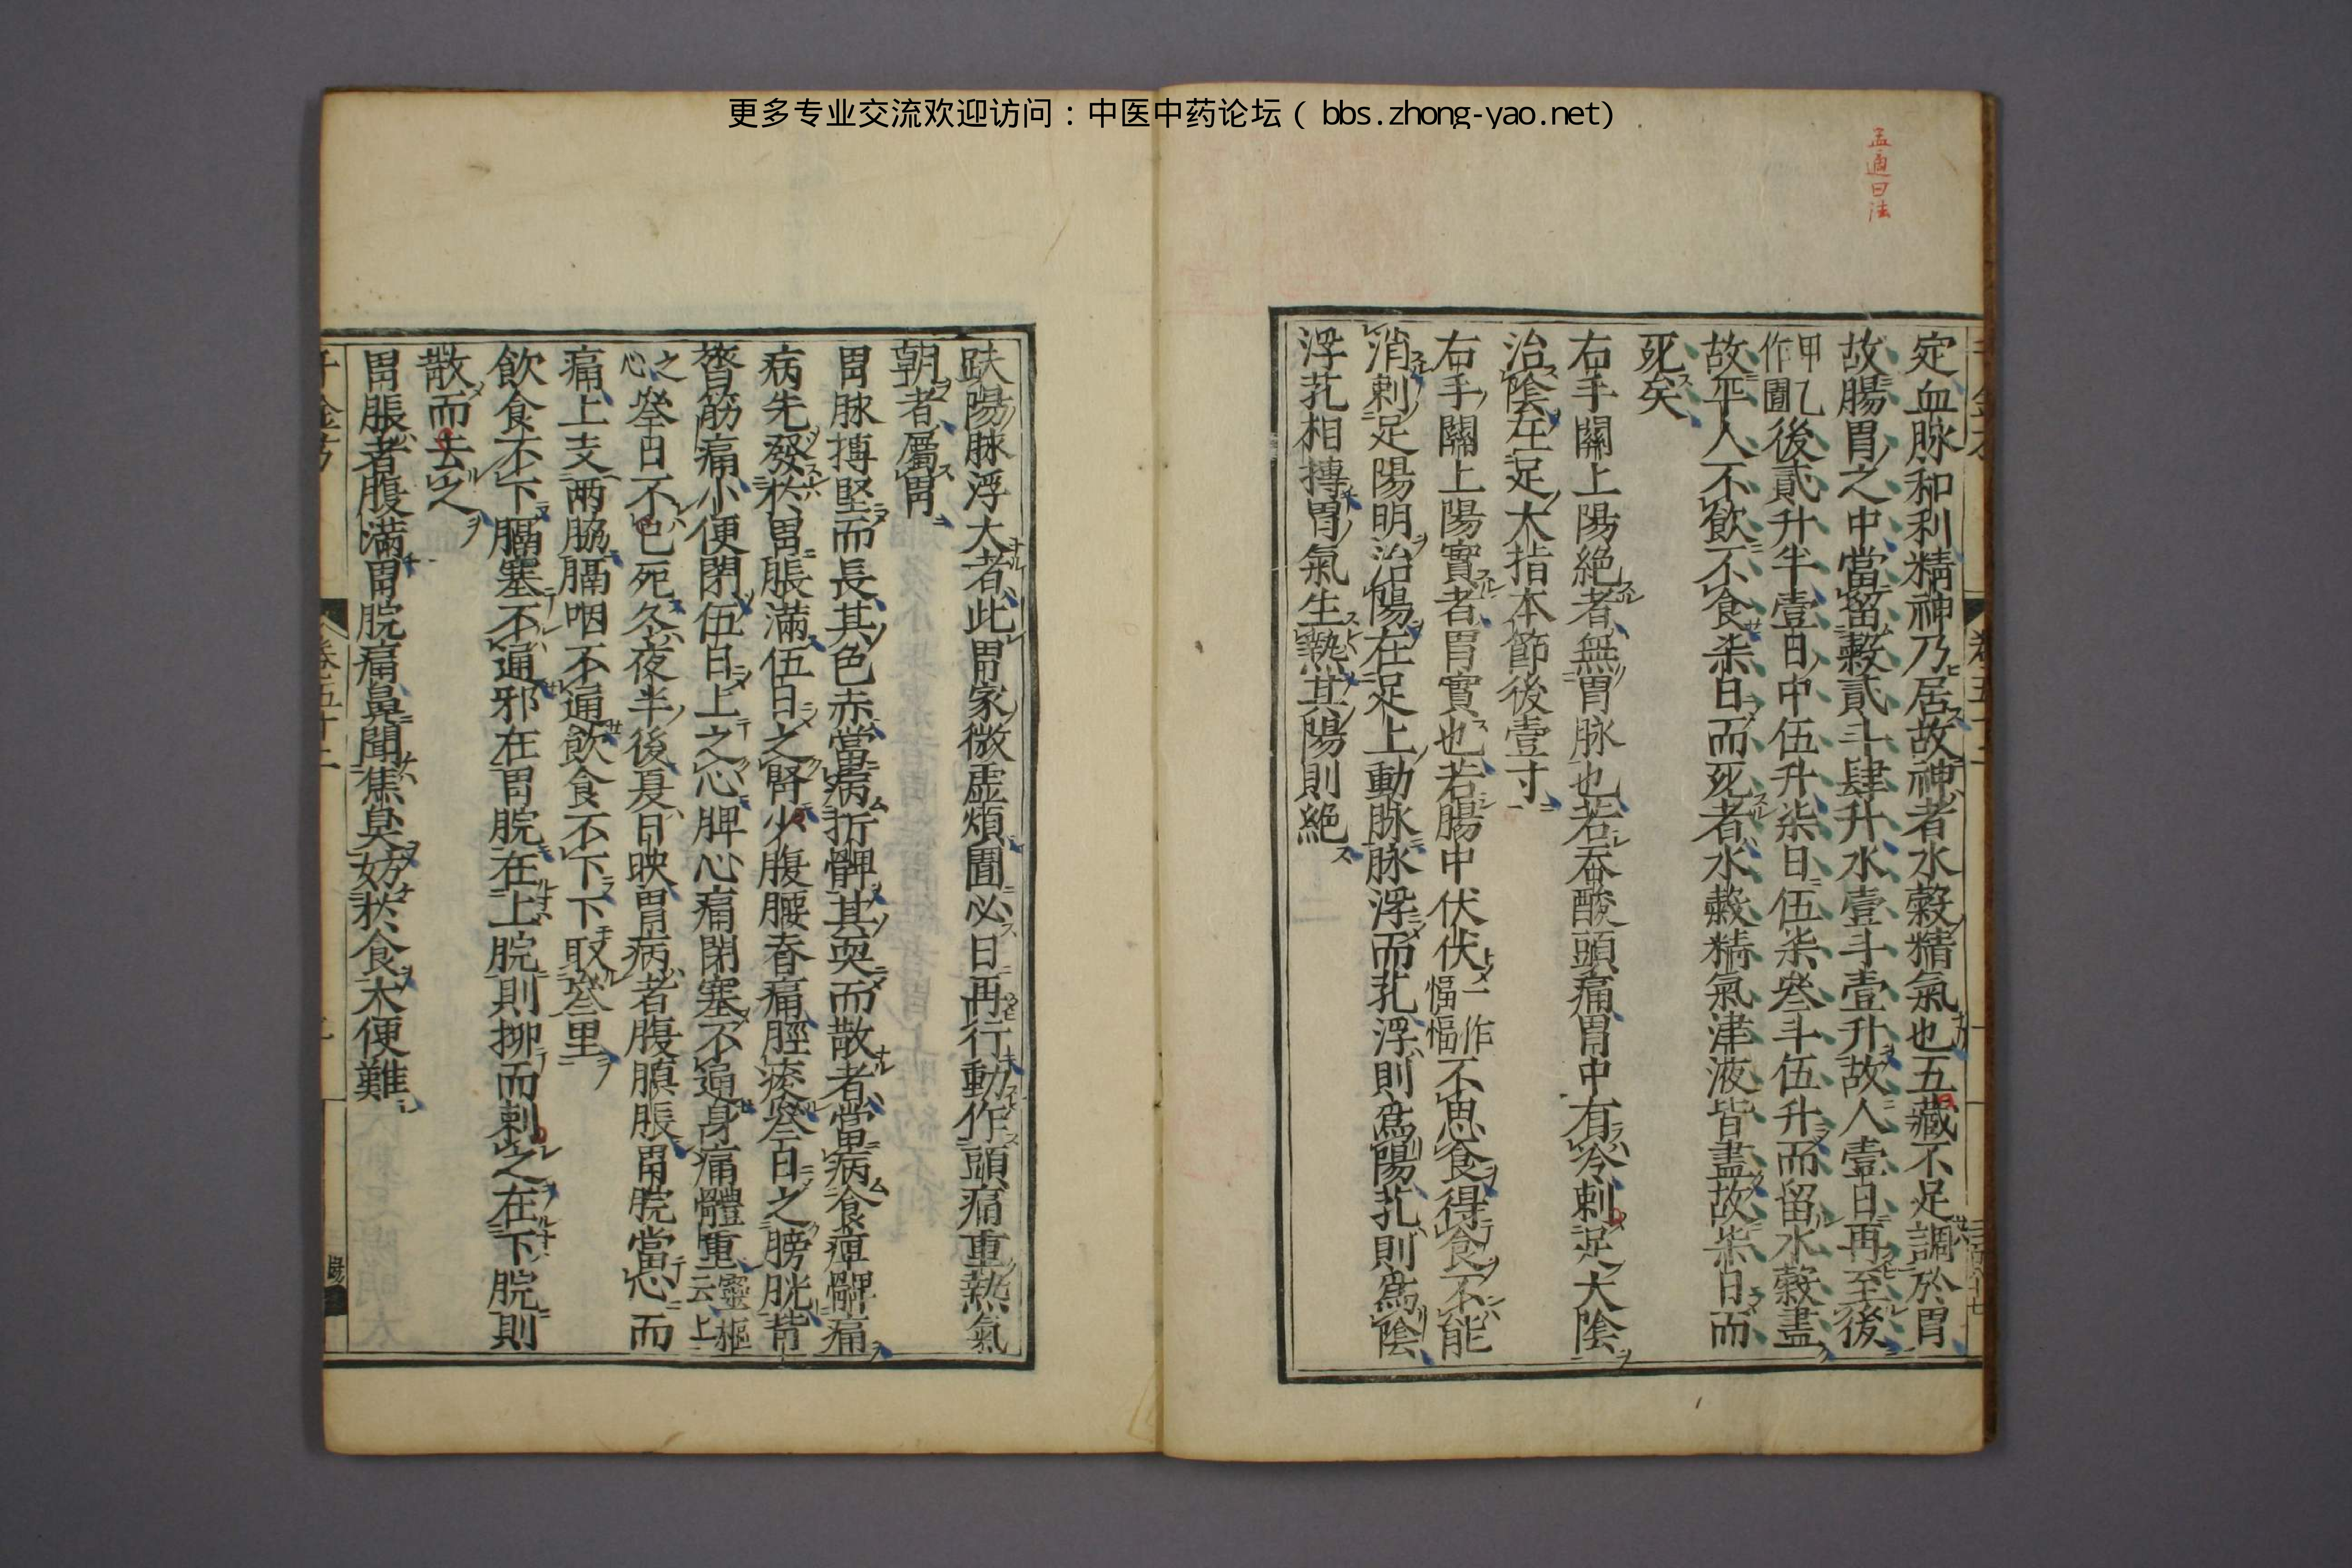 更多专业交流欢迎访问：中医中药论坛（bbs.zhong-yao.net）
孟適曰法
定血脉和利精神乃居故神者水穀精氣也五藏不足調於胃
故腸胃之中當留穀貳斗肆升水壹斗壹升故人壹日再至後
甲乙作圊後貳升半壹日中伍升柒日伍柒叄斗伍升而留水穀盡
故平人不飲不食柒日而死者水穀精氣津液皆盡故柒日而
死矣
右手關上陽絕者無胃脉也若吞酸頭痛胃中有冷刺足太陰
治陰在足大指本節後壹寸
右手關上陽實者胃實也若腸中伏伏一作愊愊不思食得食不能
消刺足陽明治陽在足上動脉脉浮而芤浮則爲陽芤則爲陰
浮芤相摶胃氣生熱其陽則絕
趺陽脉浮大者此胃家微虛煩圊必日再行動作頭痛重熱氣
朝者屬胃
胃脉搏堅而長其色赤當病折髀其耎而散者當病食痺髀痛
病先發於胃脹滿伍日之腎少腹腰脊痛脛痠叄日之膀胱背
膂筋痛小便閉伍日上之心脾心痛閉塞不通身痛體重靈樞云上
之心叄日不已死冬夜半後夏日昳胃病者腹䐜脹胃脘當心而
痛上支兩脇膈咽不通飲食不下下取叄里
飲食不下膈塞不通邪在胃脘在上脘則抑而刺之在下脘則
散而去之
胃脹者腹滿胃脘痛鼻聞焦臭妨於食大便難
千金方
卷五十二